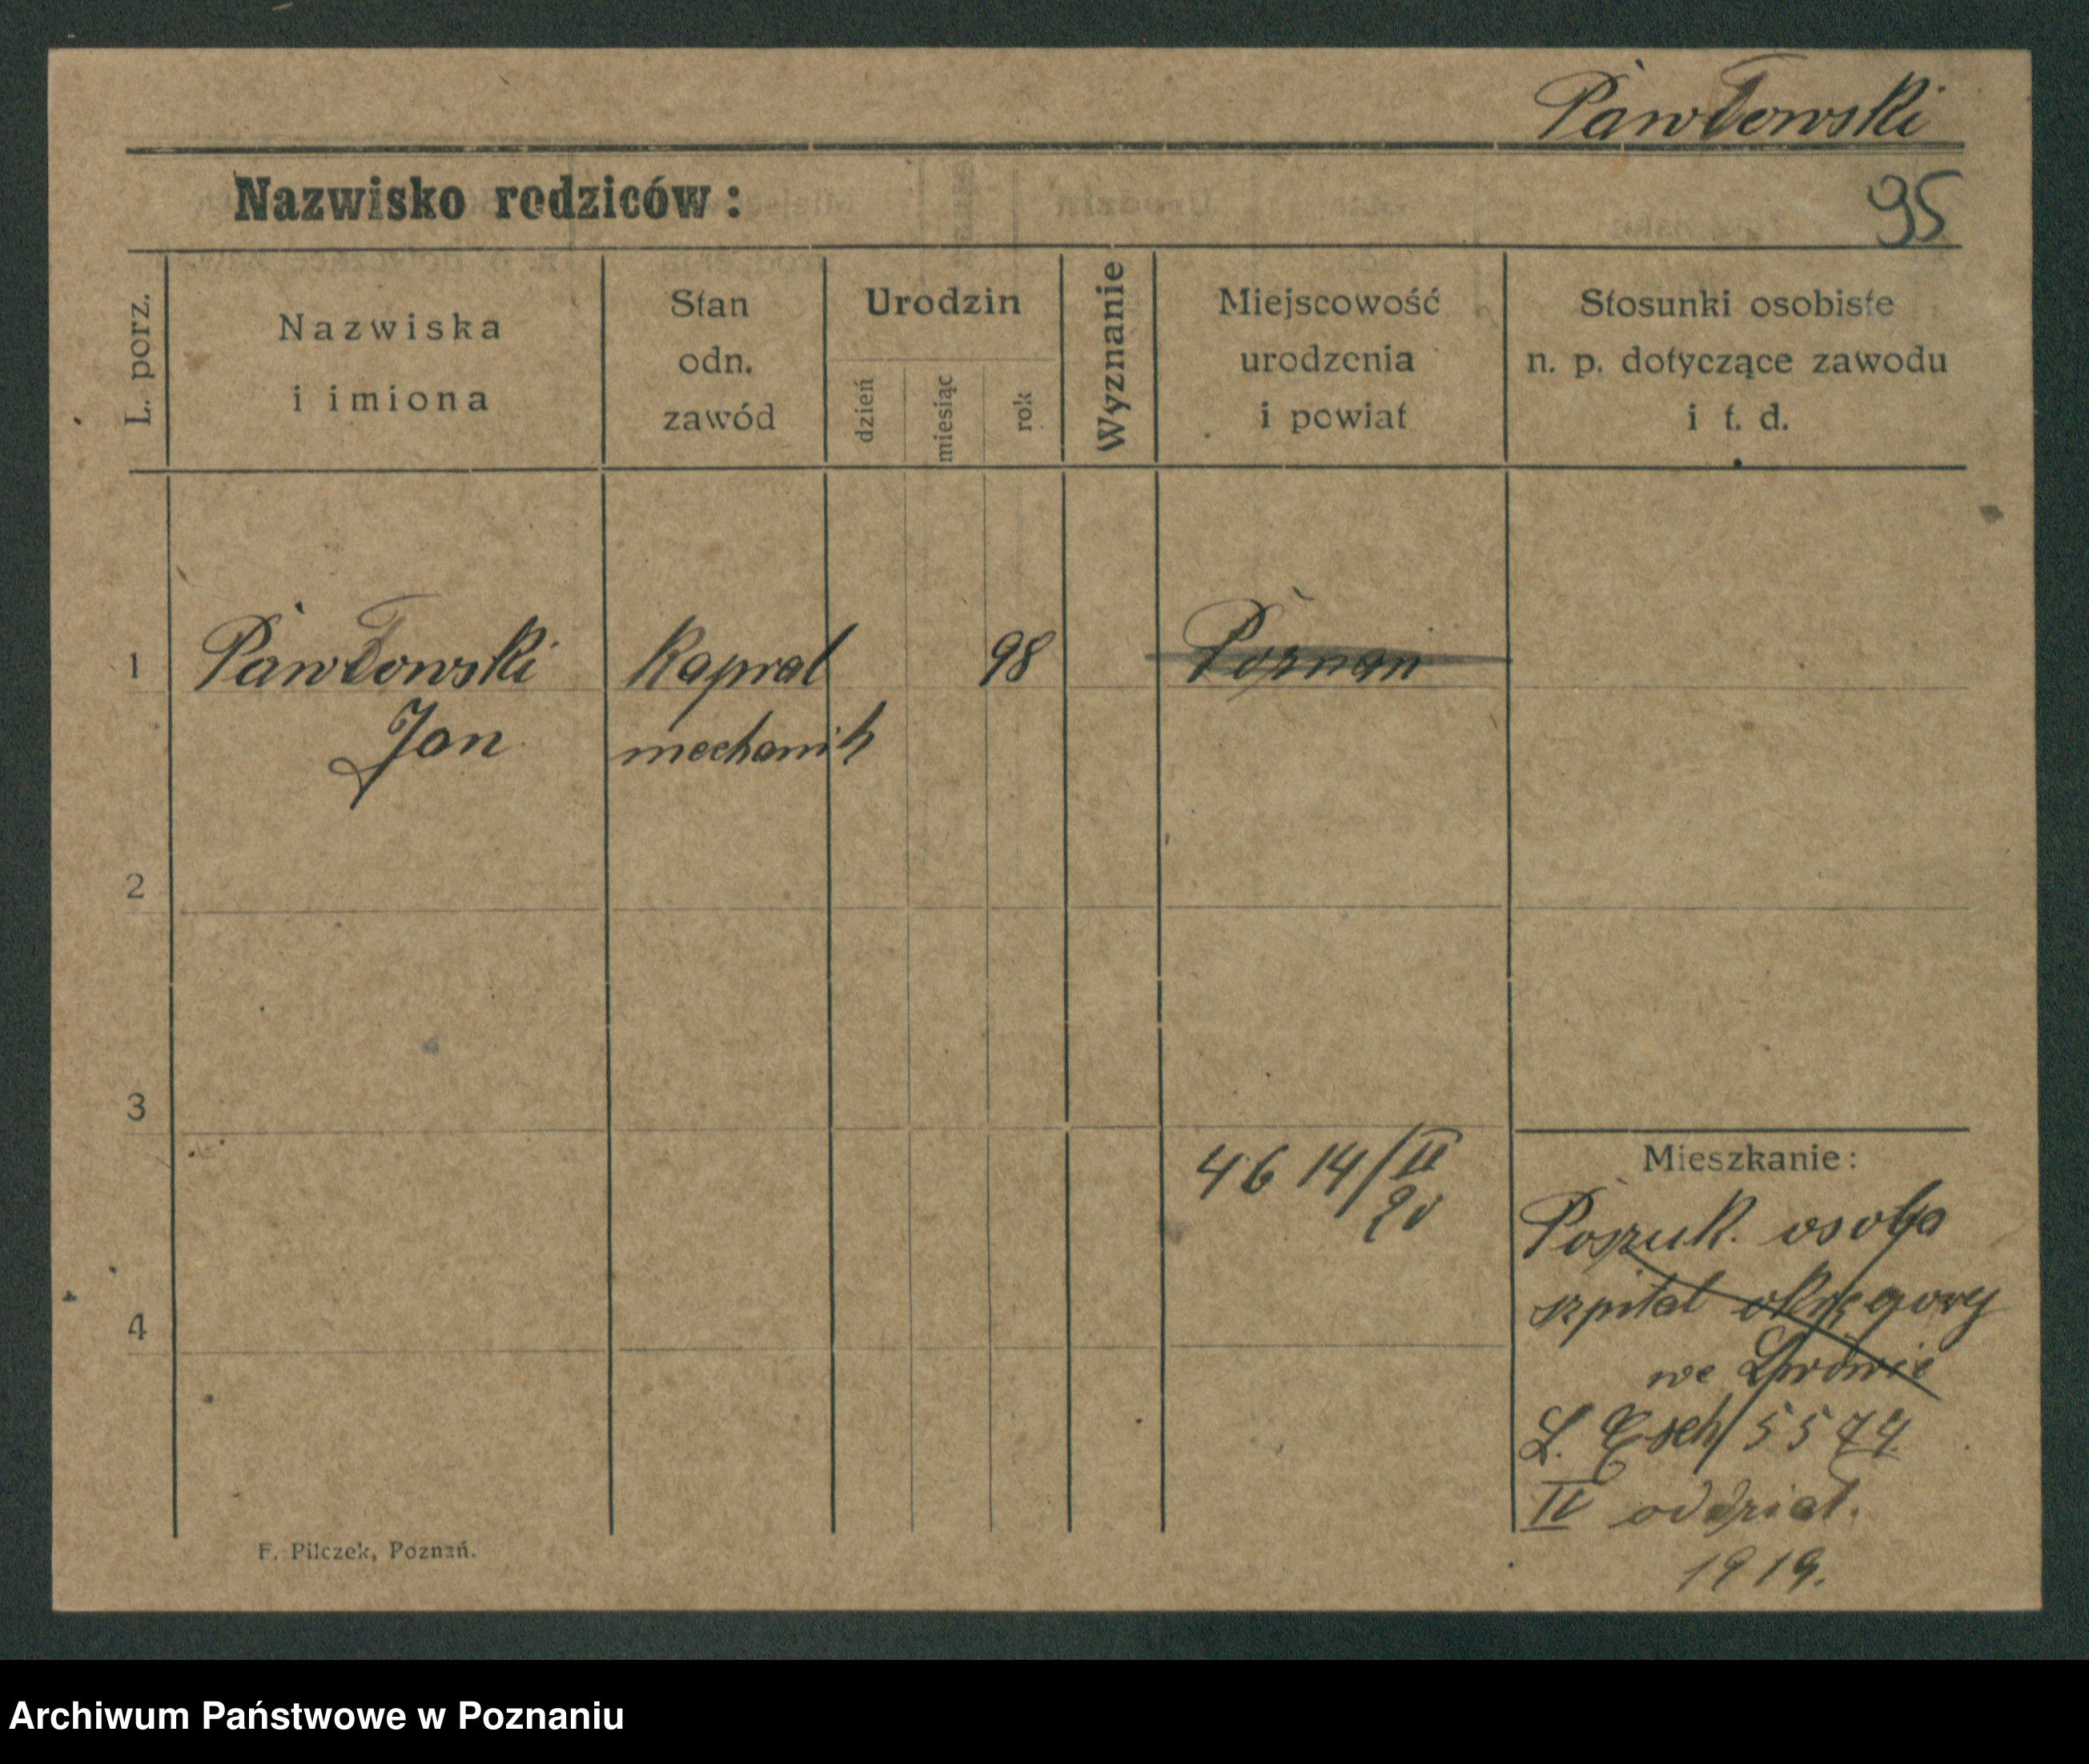 Pawłowski
Nazwisko rodziców:
95
L. porz.
Nazwiska
i imiona
Stan
odn.
zawód
Urodzin
dzień
miesiąc
rok
Wyznanie
Miejscowość
urodzenia
i powiat
Stosunki osobiste
n. p. dotyczące zawodu
i t. d.
1
Pawłowski
Kapral
98
Poznań
Jan
mechanik
2
3
4614/II
20
Mieszkanie:
Poszuk. osoba
szpital okręgowy
we Lwowie
L. Esch/5574
IV oddział.
1919.
4
F. Pilczek, Poznań.
Archiwum Państwowe w Poznaniu